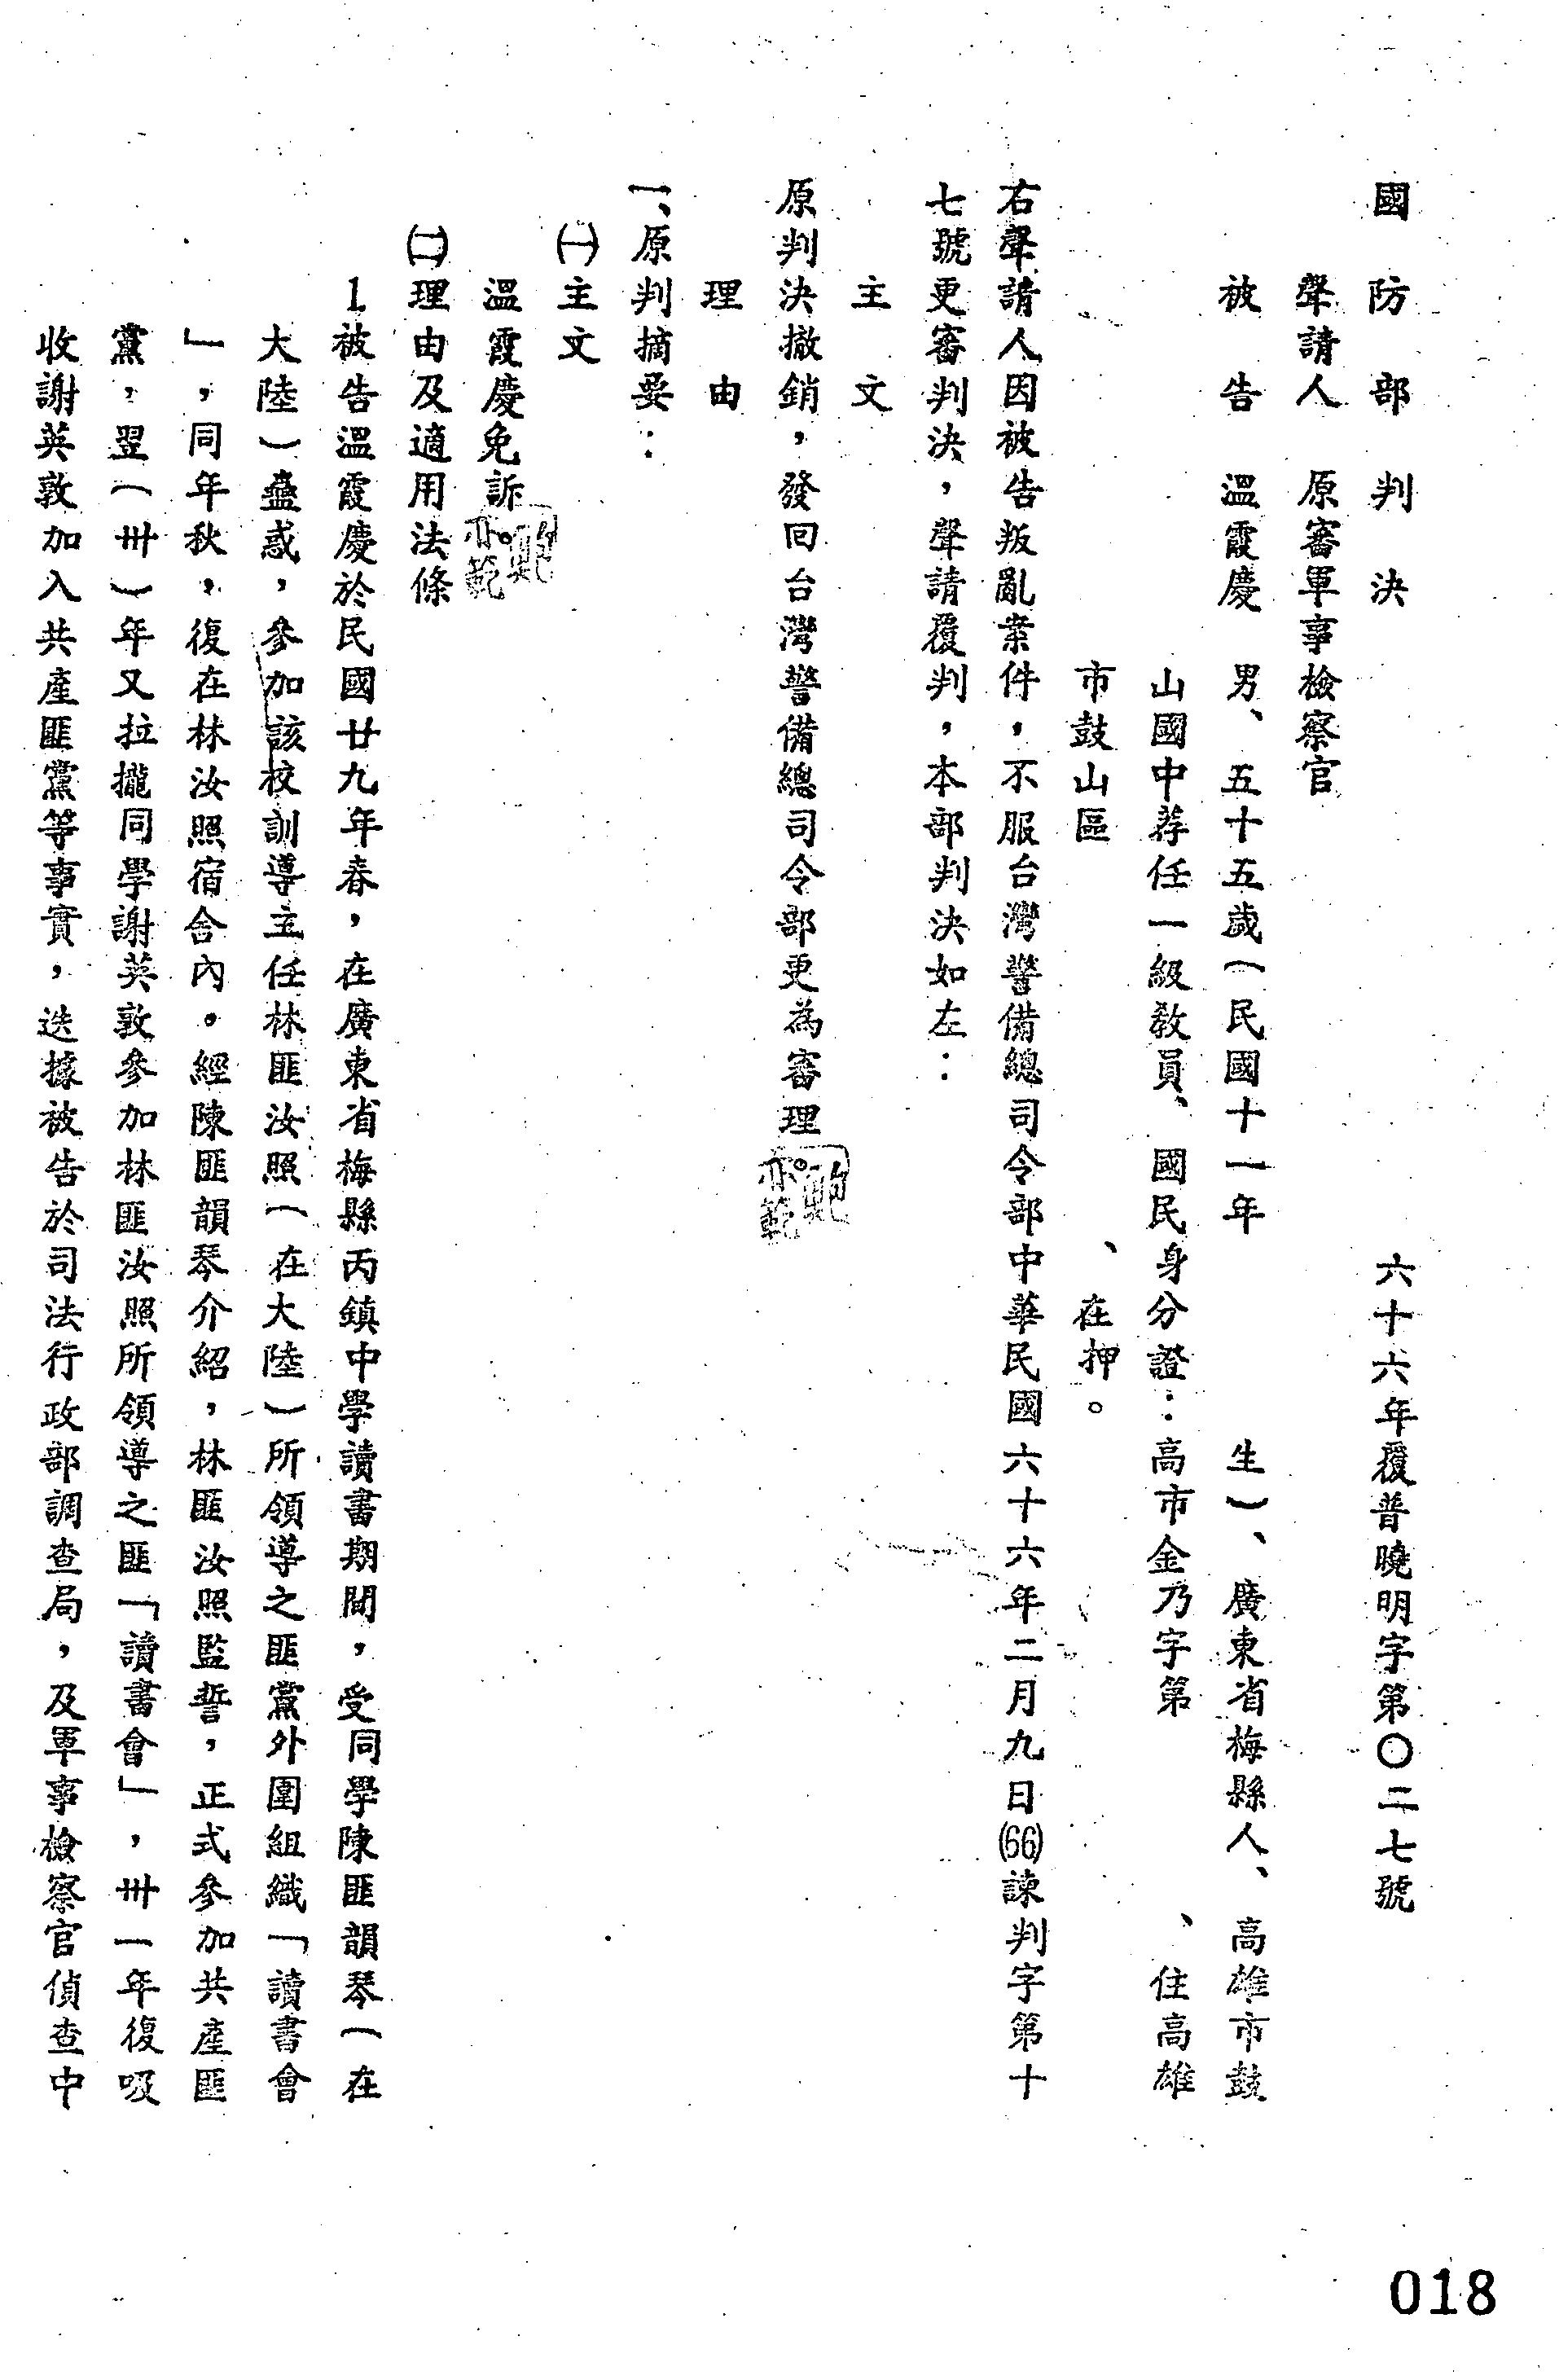 國防部判決　六十六年覆普曉明字第〇二七號
聲請人　原審軍事檢察官
被告　溫霞慶　男、五十五歲（民國十一年　生）、廣東省梅縣人、高雄市鼓
山國中荐任一級教員、國民身分證：高市金乃字第　、住高雄
市鼓山區　、在押。
右聲請人因被告叛亂案件，不服台灣警備總司令部中華民國六十六年二月九日(66)諫判字第十
七號更審判決，聲請覆判，本部判決如左：
主文
原判決撤銷，發回台灣警備總司令部更為審理。
理由
一、原判摘要：
㈠主文
溫霞慶免訴。
㈡理由及適用法條
1.被告溫霞慶於民國廿九年春，在廣東省梅縣丙鎮中學讀書期間，受同學陳匪韻琴（在
大陸）蠱惑，參加該校訓導主任林匪汝照（在大陸）所領導之匪黨外圍組織「讀書會
」，同年秋，復在林汝照宿舍內。經陳匪韻琴介紹，林匪汝照監誓，正式參加共產匪
黨，翌（卅）年又拉攏同學謝英敦參加林匪汝照所領導之匪「讀書會」，卅一年復吸
收謝英敦加入共產匪黨等事實，迭據被告於司法行政部調查局，及軍事檢察官偵查中
018